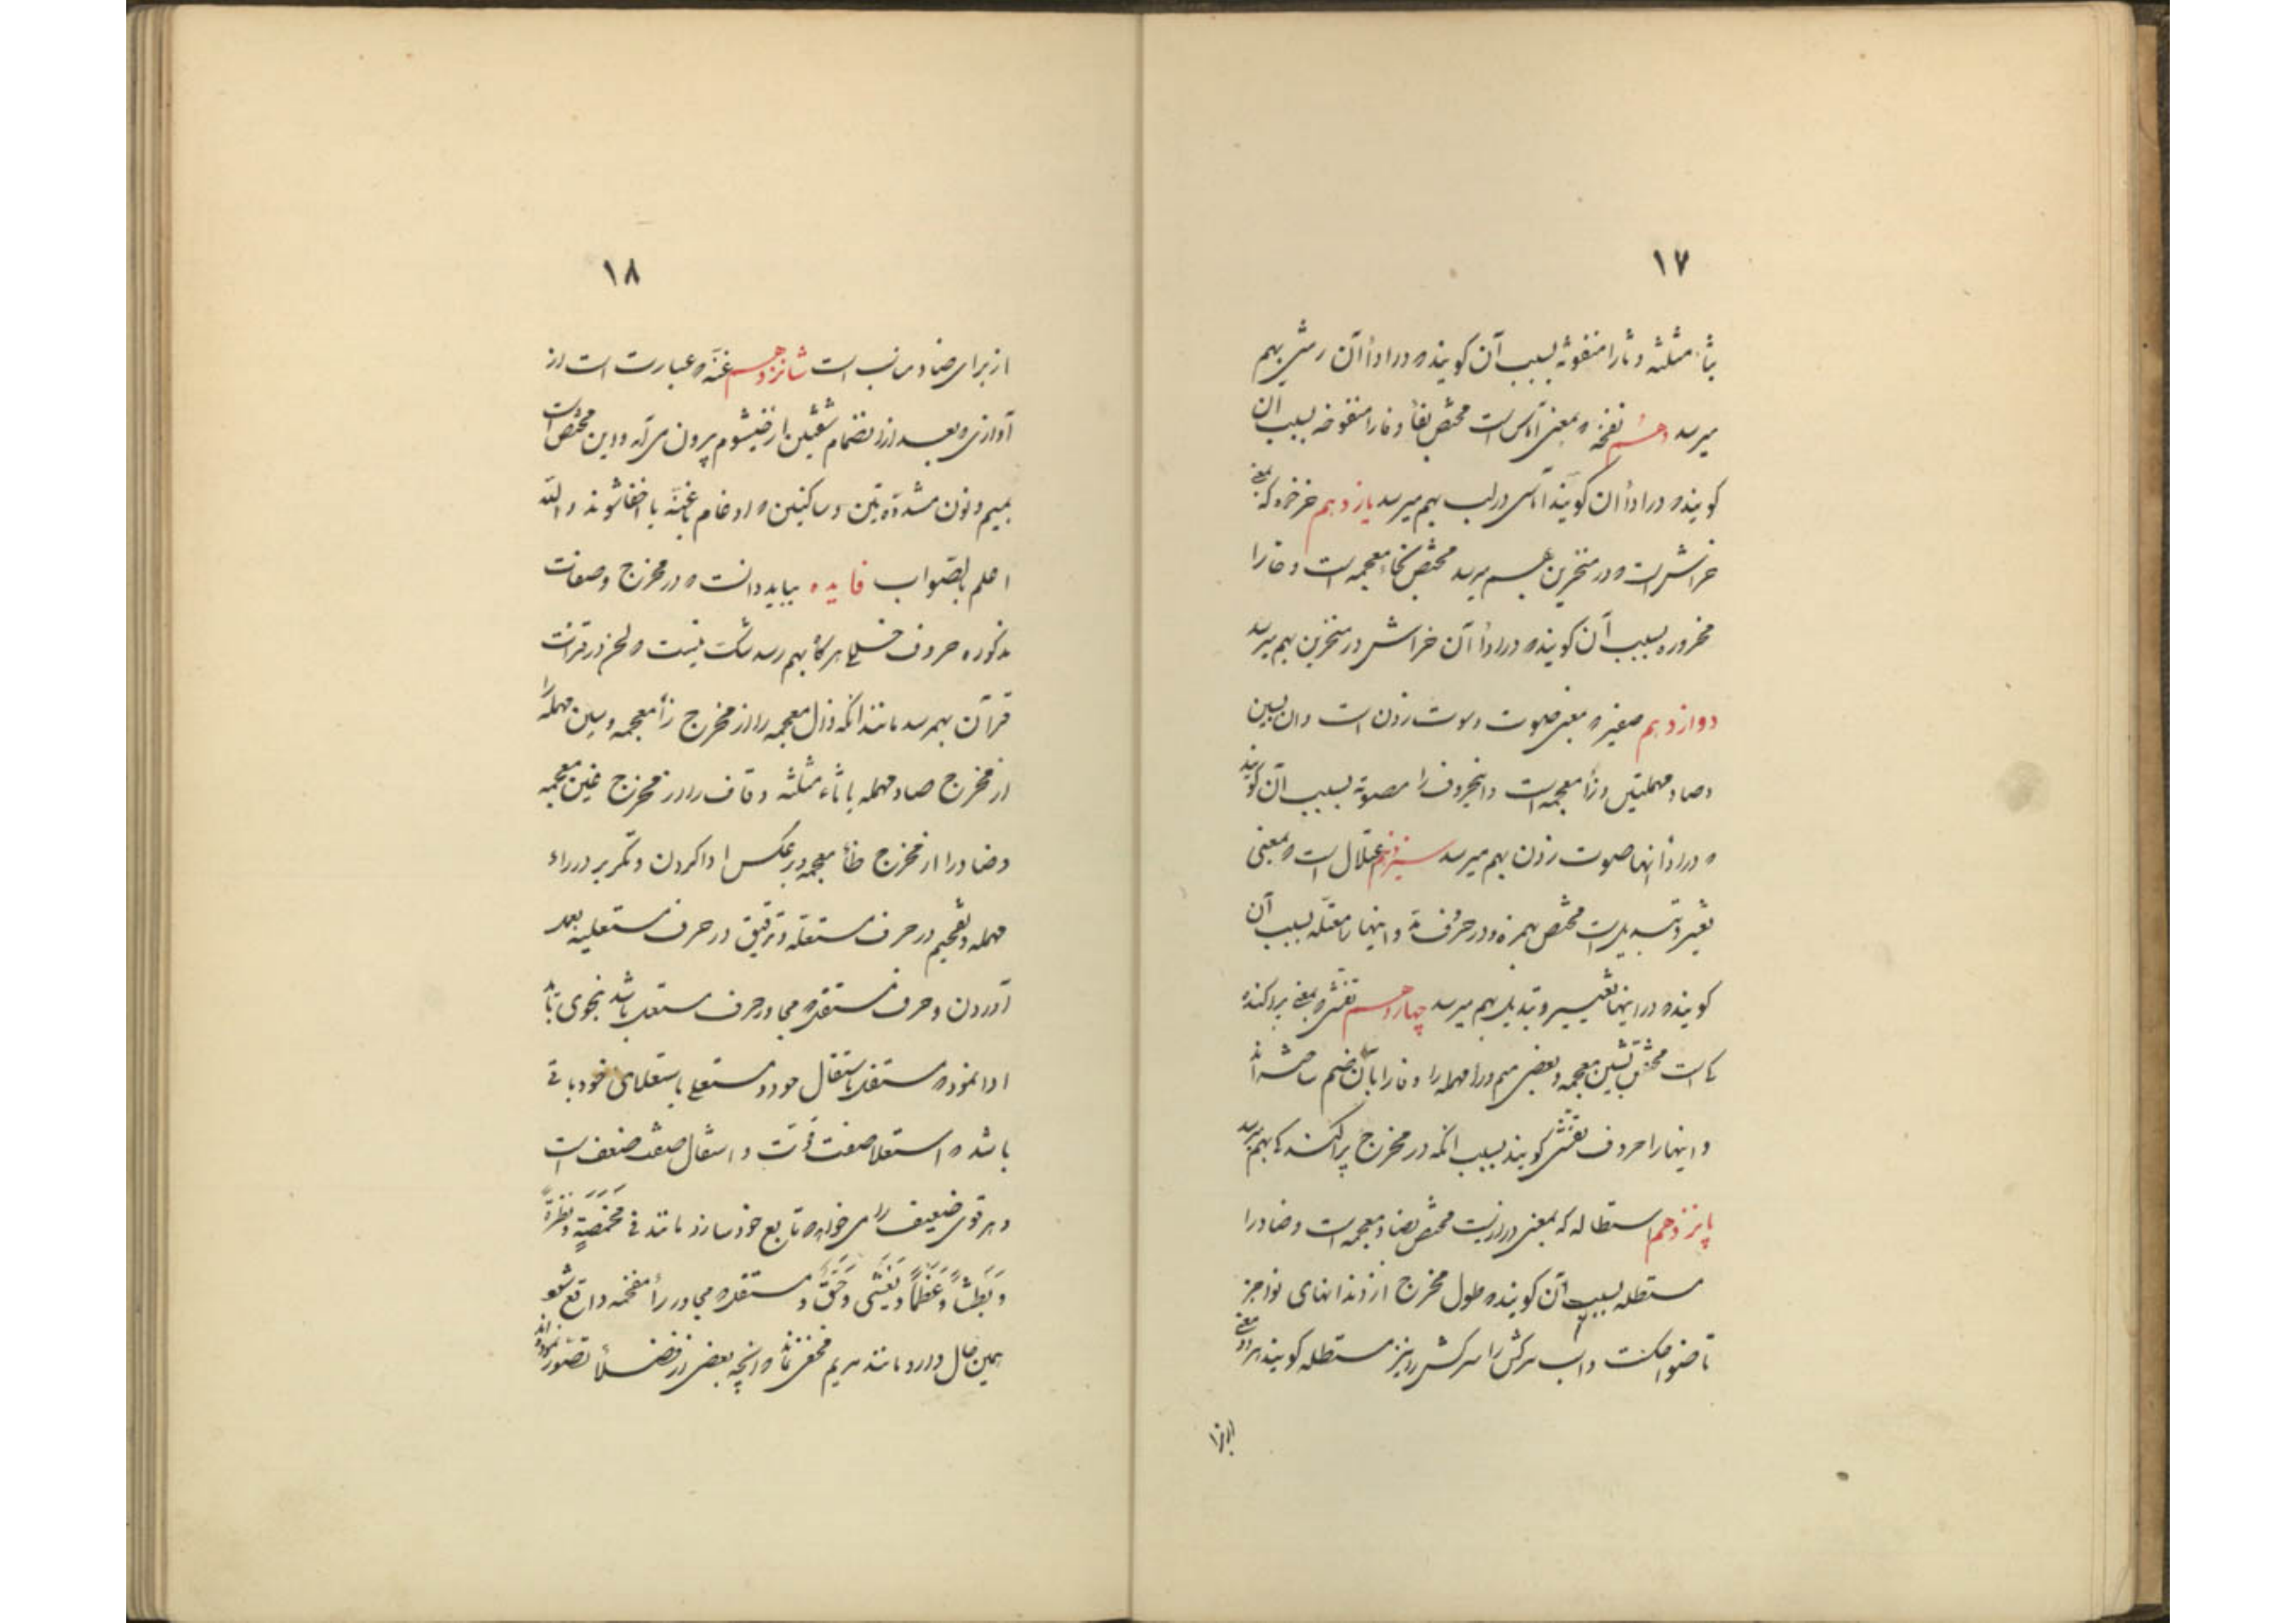 ١٧
بثاء مثلثه و ثا را منفوثه بسبب آن کویند در اداأ آن رمشی بهم
میرسد دهم نفخه بمعنی آماس است مختص بفأ و فا را منفوخه بسبب ان
کویند در اداأ ان کویند اماسی در لب بهم میرسد یازدهم خرخره که بمعنی
خراش است در منخرین بهم میرسد مختص بخاء معجمه است و خا را
مخروره بسبب آن کویند در اداأ آن خراش در منخرین بهم میرسد
دوازدهم صفیر بمعنی صوت و سوت زدن است و ان بسین
و صاد مهملتین و زأ معجمه است و اینحروف را مصوته بسبب آن کویند
در اداأ انها صوت زدن بهم میرسد سیزدهم اعتلال است بمعنی
تغییر و تبدیل است مختص بهمزه و در حروف مد و اینها را معتله بسبب آن
کویند در اینها تغییر و تبدیل بهم میرسد چهاردهم تفشی بمعنی پراکنده
است مختص بشین معجمه و بعضی میم و را مهمله را و فا را بآن ضم ساخته اند
و اینها را حروف تفشی کویند بسبب انکه در مخرج پراکنده بهم میرسد
پانزدهم استطاله که بمعنی درازیست مختص بضاد معجمه است و ضاد را
مستطله بسبب آن کویند طول مخرج از دندانهای نواجز
تا ضواحکست و اسب سرکش را سرکش را نیز مستطله کویند
١٨
از برای ضاد مناسب است شانزدهم غنه عبارت است از
آوازی بعد از انضمام شفتین از خیشوم بیرون می آید و این مختص است
بمیم و نون مشددتین و ساکنین ادغام باغنه یا اخفا شوند و الله
اعلم بالصواب فایده بباید دانست در مخرج و صفات
مذکوره حروف خللی هرکاه بهم رسد شک نیست لحن در قرائت
قرآن بهم رسد مانند انکه ذال معجمه را از مخرج زأ معجمه و سین مهمله را
از مخرج صاد مهمله یا ثاء مثلثه و قاف را از مخرج غین معجمه
و ضاد را از مخرج ظأ معجمه و برعکس ادا کردن و تکریر در راء
مهمله و تفخیم در حرف مستفله و ترقیق در حرف مستعلیه بعمل
آوردن و حرف مستفله مجاور حرف مستعلیه باشد بنحوی باید
ادا نمود مستفله باستفال خود و مستعلیه باستعلای خود باقی
باشد استعلا صفت قوت و استفال صفت ضعف است
و هر قوی ضعیف را می خواهد تابع خود سازد مانند فی مَخمَصَةٍ و نَظرَةً
و بَطشاً و عَظماً و یَغشی و حَقَّ و مستفله مجاور رأ مفخمه واقع شود
همین حال دارد مانند مریم انچه بعضی از فضلأ تصور نموده اند